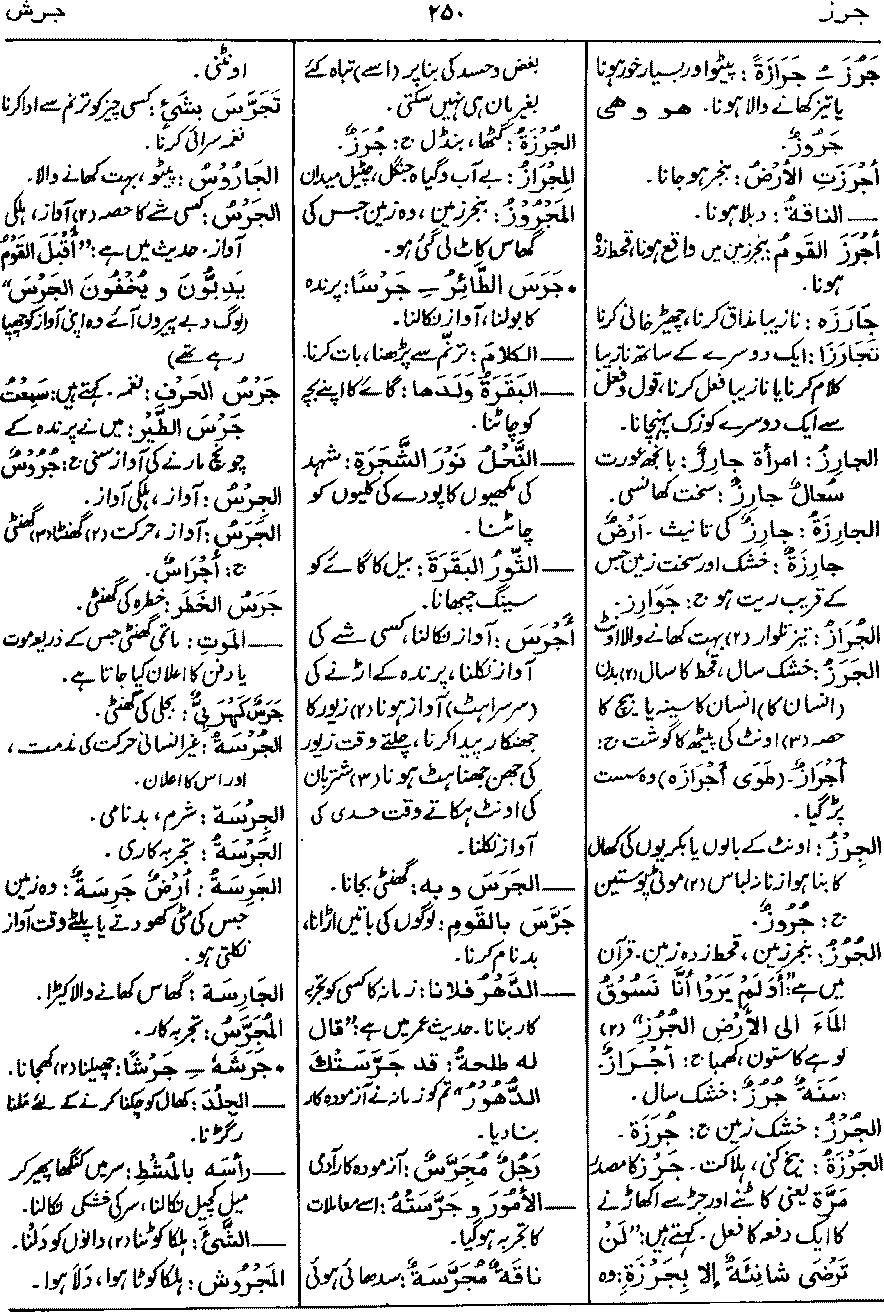 جرز
۲۵۰
جرش
جَرُزَ ـُ جَرَازَةً : پیٹو اور بسیار خور ہونا
یا تیز کھانے والا ہونا۔ هو و هی
جَرُوزٌ۔
أجْرَزَتِ الأرْضُ : بنجر ہوجانا۔
ـــ الناقةُ : دبلا ہونا۔
أجْرَزَ القومُ : بنجر زمین میں واقع ہونا، قحط زدہ
ہونا۔
جَارَزَه : نازیبا مذاق کرنا، چھیڑ خانی کرنا
تَجَارَزَا : ایک دوسرے کے ساتھ نازیبا
کلام کرنا یا نازیبا فعل کرنا، قول و فعل
سے ایک دوسرے کو زک پہنچانا۔
الجارِزُ : امرأة جارِزٌ : بانجھ عورت
سُعالٌ جارِزٌ : سخت کھانسی۔
الجارِزَةُ : جارِزٌ کی تانیث ۔ أرْضٌ
جارِزَةٌ : خشک اور سخت زمین جس
کے قریب ریت ہو ج : جَوَارِز۔
الجُرَازُ : تیز تلوار (۲) بہت کھانے والا اونٹ
الجَرَزُ : خشک سال، قحط کا سال (۲) بدن
(انسان کا) انسان کا سینہ یا بیچ کا
حصہ (۳) اونٹ کی پیٹھ کا گوشت ج :
أجْرَازٌ۔ (طَوَى أجْرَازَه) وہ سست
پڑ گیا۔
الجِرْزُ : اونٹ کے بالوں یا بکریوں کی کھال
کا بنا ہوا زنانہ لباس (۲) موٹی پوستین
ج : جُرُوزٌ۔
الجُرُزُ : بنجر زمین، قحط زدہ زمین۔ قرآن
میں ہے : "أوَلَمْ يَرَوْا أنَّا نَسُوْقُ
المَاءَ الى الأرْضِ الجُرُزِ" (۲)
لوہے کا ستون، کھمبا ج : أجْرَازٌ۔
سَنَةٌ جُرُزٌ : خشک سال۔
الجُرْزُ : خشک زمین ج : جُرَزَة۔
الجَرْزَةُ : بیخ کنی، ہلاکت۔ جَرْز کا مصدر
مَرَّة یعنی کاٹنے اور جڑ سے اکھاڑنے
کا ایک دفعہ کا فعل ۔ کہتے ہیں : "لَنْ
تَرْضَى شانِئَةٌ إلا بِجَرْزَةٍ : وہ
بغض و حسد کی بنا پر (اسے) تباہ کئے
بغیر مان ہی نہیں سکتی۔
الجُرْزَةُ : گٹھا، بنڈل ج : جُرَزٌ۔
المِجْرَازُ : بے آب و گیاہ جنگل، چٹیل میدان
المَجْرُوْزُ : بنجر زمین، وہ زمین جس کی
گھاس کاٹ لی گئی ہو۔
• جَرَسَ الطَّائِرُ ـِ جَرْسًا : پرندہ
کا بولنا، آواز نکالنا۔
ـــ الكلامَ : ترنّم سے پڑھنا، بات کرنا۔
ـــ البَقَرَةُ وَلَدَها : گائے کا اپنے بچے
کو چاٹنا۔
ـــ النَّحْلُ نَوْرَ الشَّجَرَةِ : شہد
کی مکھیوں کا پودے کی کلیوں کو
چاٹنا۔
ـــ الثَّوْرُ البَقَرَةَ : بیل کا گائے کو
سینگ چبھانا۔
أجْرَسَ : آواز نکالنا، کسی شے کی
آواز نکلنا، پرندہ کے اڑنے کی
(سرسراہٹ) آواز ہونا (۲) زیور کا
جھنکار پیدا کرنا، چلتے وقت زیور
کی جھن جھناہٹ ہونا (۳) شتربان
کی اونٹ ہکاتے وقت حدی کی
آواز نکلنا۔
ـــ الجَرَسَ و بِه : گھنٹی بجانا۔
جَرَّسَ بالقَومِ : لوگوں کی باتیں اڑانا،
بدنام کرنا۔
ـــ الدَّهْرُ فلانا : زمانہ کا کسی کو تجربہ
کار بنانا۔ حدیث عمر میں ہے : "قال
له طلحةُ : قد جَرَّسَتْكَ
الدُّهُورُ" تم کو زمانہ نے آزمودہ کار
بنا دیا۔
رَجُلٌ مُجَرَّسٌ : آزمودہ کار آدمی
ـــ الأمُوْرَ و جَرَّسَتْهُ : اسے معاملات
کا تجربہ ہو گیا۔
ناقَةٌ مُجَرَّسَةٌ : سدھائی ہوئی
اونٹنی۔
تَجَرَّسَ بشَيْءٍ : کسی چیز کو ترنم سے ادا کرنا
نغمہ سرائی کرنا۔
الجَارُوْسُ : پیٹو، بہت کھانے والا۔
الجَرْسُ : کسی شے کا حصہ (۲) آواز، ہلکی
آواز۔ حدیث میں ہے : "أقْبَلَ القَوْمُ
يَدِبُّوْنَ و يُخْفُونَ الجَرْسَ"
(لوگ دبے پیروں آئے وہ اپنی آواز کو چھپا
رہے تھے)
جَرْسُ الحَرْفِ : نغمہ۔ کہتے ہیں : سَمِعْتُ
جَرْسَ الطَّيْرِ : میں نے پرندہ کے
چونچ مارنے کی آواز سنی ج : جُرُوْسٌ
الجِرْسُ : آواز، ہلکی آواز۔
الجَرَسُ : آواز، حرکت (۲) گھنٹا (۳) گھنٹی
ج : أجْرَاسٌ۔
جَرَسُ الخَطَرِ : خطرہ کی گھنٹی۔
ـــ المَوتِ : ماتمی گھنٹی جس کے ذریعہ موت
یا دفن کا اعلان کیا جاتا ہے۔
جَرَسٌ كَهْرَبِيٌّ : بجلی کی گھنٹی۔
الجُرْسَةُ : غیر انسانی حرکت کی مذمت،
اور اس کا اعلان۔
الجِرْسَة : شرم، بدنامی۔
الجَرْسَةُ : تجربہ کاری۔
الجَرِسَةُ : أرْضٌ جَرِسَةٌ : وہ زمین
جس کی مٹی کھودتے یا پلٹتے وقت آواز
نکلتی ہو۔
الجَارِسَة : گھاس کھانے والا کیڑا۔
المُجَرَّسُ : تجربہ کار۔
• جَرَشَهُ ـِ جَرْشًا : چھیلنا (۲) کھجانا۔
ـــ الجِلْدَ : کھال کو چکنا کرنے کے لئے ملنا
رگڑنا۔
ـــ رأسَه بالمُشْطِ : سر میں کنگھا پھیر کر
میل کچیل نکالنا، سر کی خشکی نکالنا۔
ـــ الشَّيْءَ : ہلکا کوٹنا (۲) دانوں کو دلنا۔
المَجْرُوش : ہلکا کوٹا ہوا، دلا ہوا۔